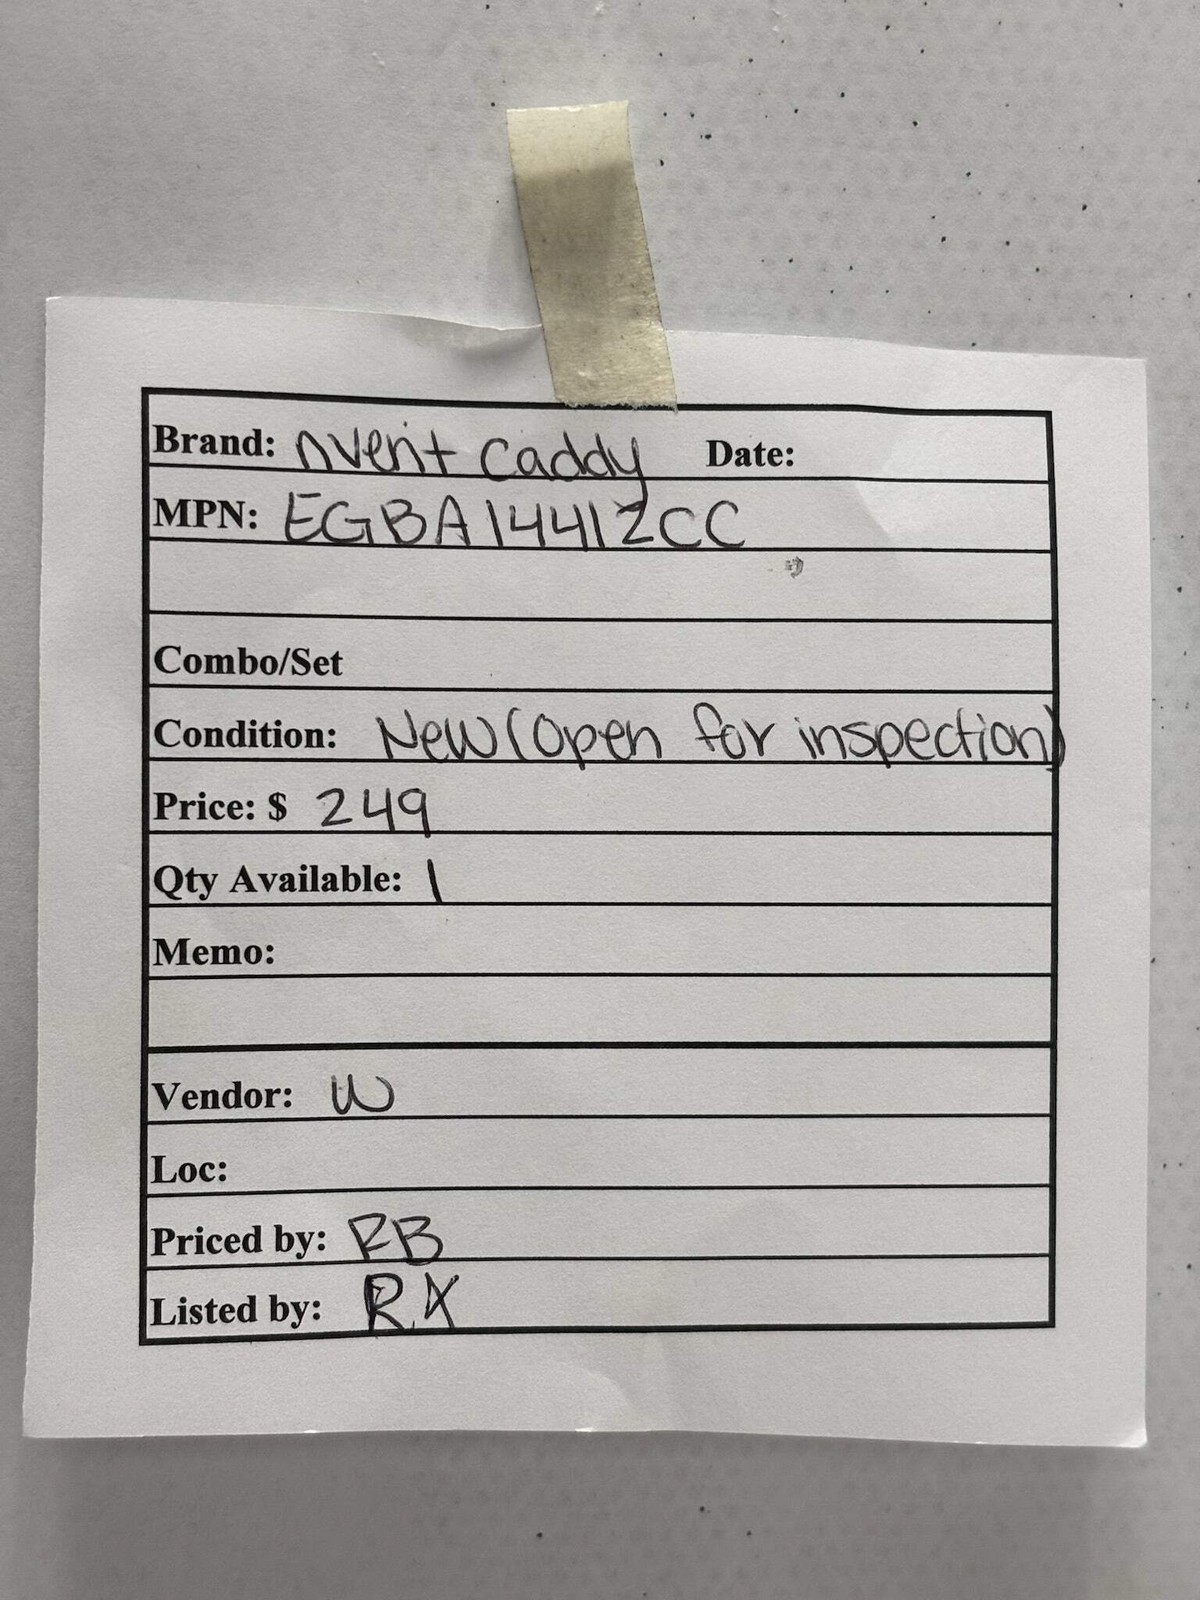 Brand: nvent caddy Date:
MPN: EGBA14412CC
Combo/Set
Condition: New (open for inspection)
Price: $ 249
Qty Available: 1
Memo:
Vendor: W
Loc:
Priced by: RB
Listed by: RX